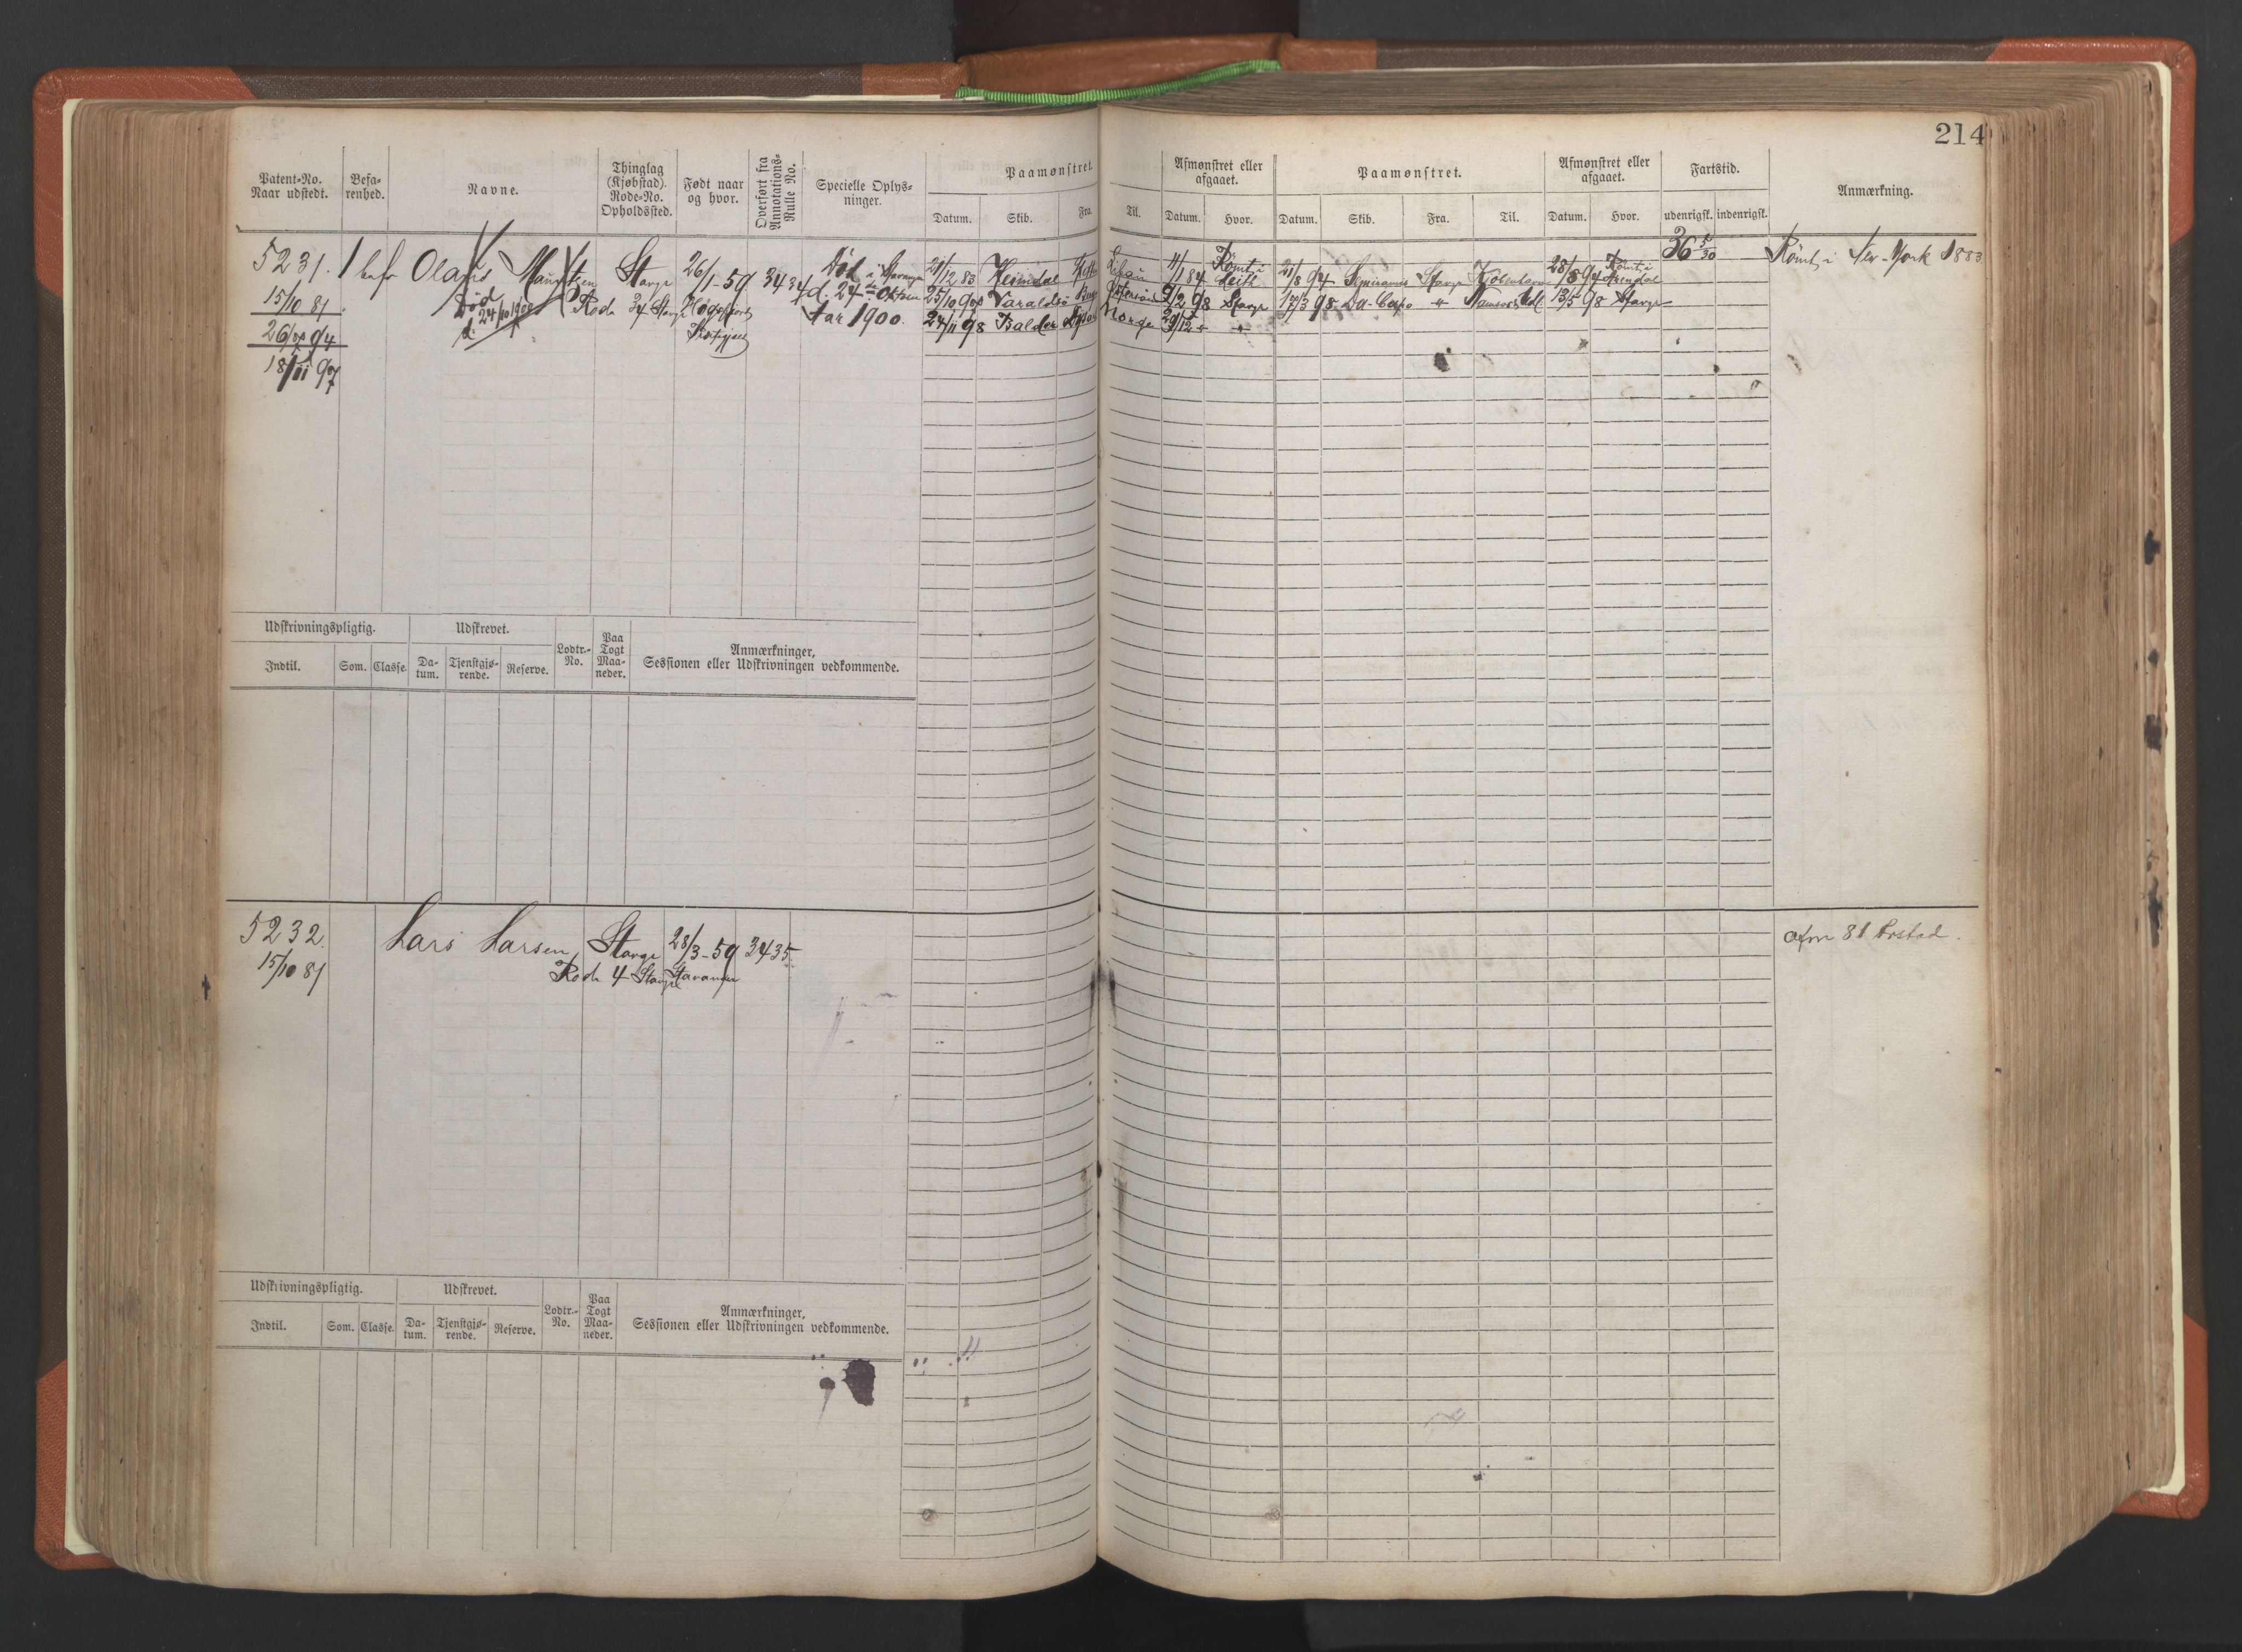 214
Patent-No. Naar udstedt.
Befarenhed.
Navne.
Thinglag (Kjøbstad). Rode-No. Opholdssted.
Født naar og hvor.
Overført fra Annotations-Rulle No.
Specielle Oplysninger.
Paamønstret.
Datum. Skib. Fra. Til.
Afmønstret eller afgaaet.
Datum. Hvor.
Paamønstret.
Datum. Skib. Fra. Til.
Afmønstret eller afgaaet.
Datum. Hvor.
Fartstid.
udenrigsk. indenrigsk.
Anmærkning.
5231. Olaus Stavgr 26/1-59 3434 Død i Stavanger
15/10 81 Død Rode 34 Stavgr d. 24de Oktober
d. 24/10 1900 tar 1900.
26/ 94
18/ 97
21/12 83 Heimdal 11/1 84 Rømt i Leith 21/8 94 Stavgr 28/8 94 Rømt i Arendal 36 5/30 Rømt i New-York 1883
25/10 Varaldsø 9/2 98 Stavgr 98 Da Capo " 13/5 98 Stavgr
24/11 98 Balder Norge "
Udskrivningspligtig. Udskrevet. Lodtr.-No. Paa Togt Maaneder. Anmærkninger, Sessionen eller Udskrivningen vedkommende.
Indtil. Som. Classe. Datum. Tjenstgjørende. Reserve.
5232. Lars Larsen Stavgr 28/3-59 3435 afm 81
15/10 81 Rode 4 Stavgr Stavanger
Udskrivningspligtig. Udskrevet. Lodtr.-No. Paa Togt Maaneder. Anmærkninger, Sessionen eller Udskrivningen vedkommende.
Indtil. Som. Classe. Datum. Tjenstgjørende. Reserve.